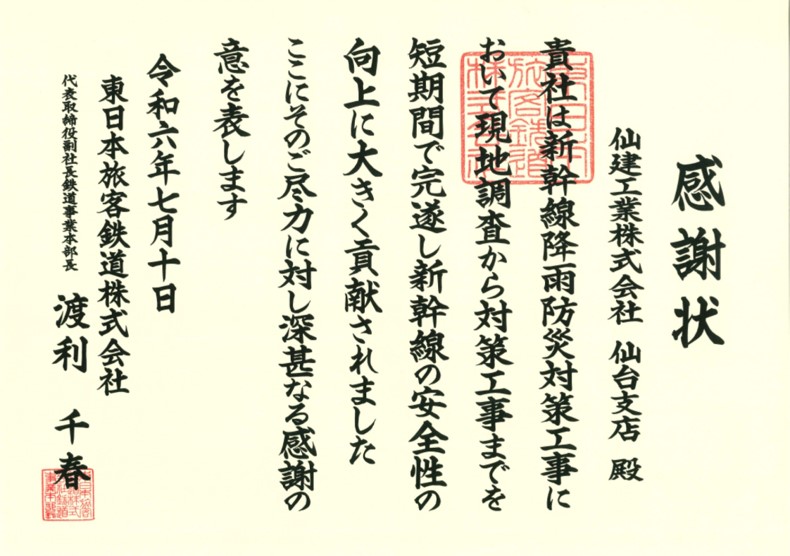 感謝状
仙建工業株式会社 仙台支店 殿
貴社は新幹線降雨防災対策工事に
おいて現地調査から対策工事までを
短期間で完遂し新幹線の安全性の
向上に大きく貢献されました
ここにそのご尽力に対し深甚なる感謝の
意を表します
令和六年七月十日
東日本旅客鉄道株式会社
代表取締役副社長鉄道事業本部長
渡利 千春